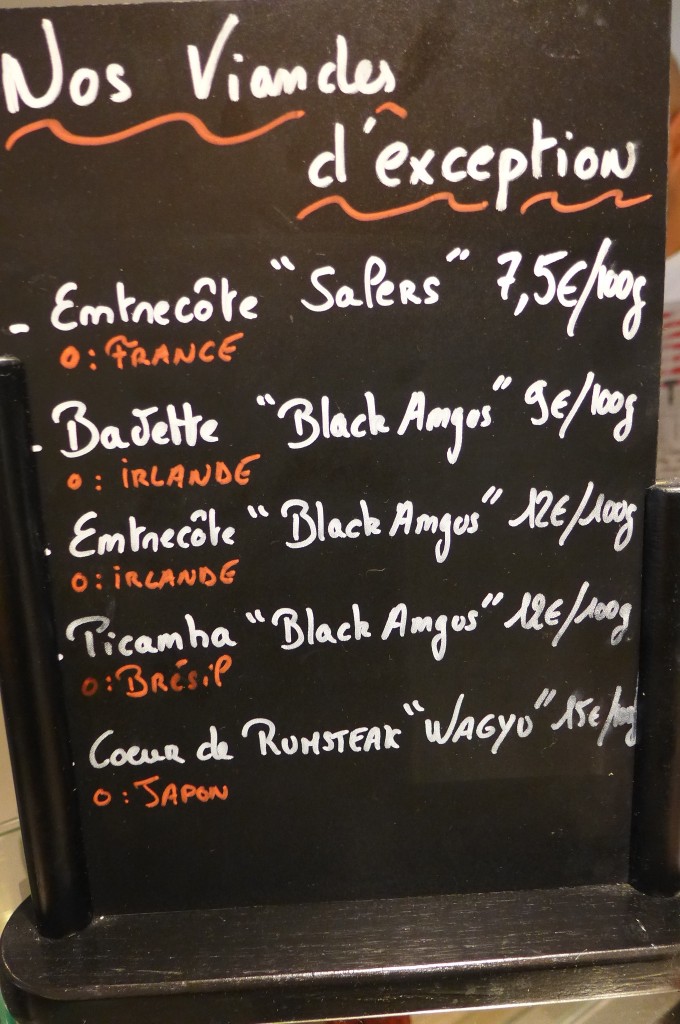 Nos Viandes
d'êxception
- Entrecôte "Salers" 7,5€/100g
O: FRANCE
. Bavette "Black Angus" 9€/100g
O: IRLANDE
. Entrecôte "Black Angus" 12€/100g
O: IRLANDE
. Picanha "Black Angus" 12€/100g
O: Brésil
. Coeur de RUMSTEAK "WAGYU" 15€/100g
O: JAPON